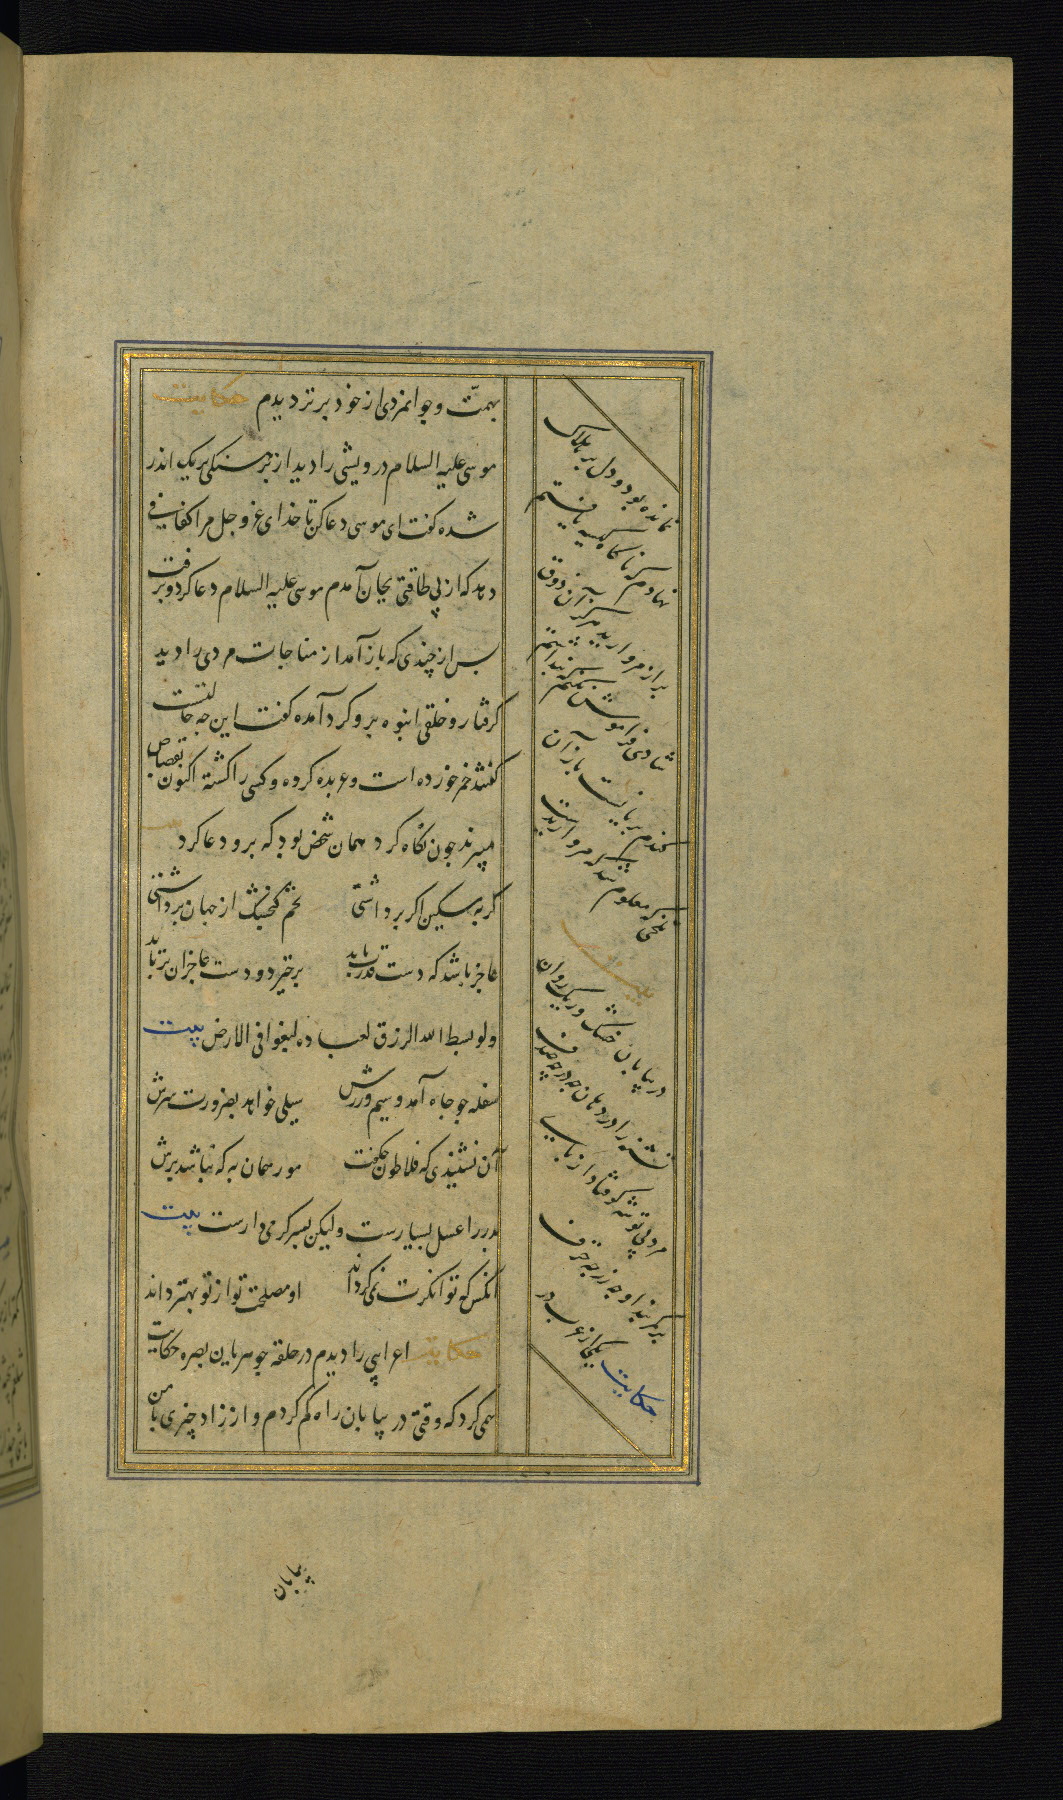 بهمت و جوانمردی از خود برتر دیدم حکایت
موسی علیه السلام درویشی را دید از برهنگی بریک اندر
شده کفت ای موسی دعا کن تا خدای عز و جل مرا کفافی
دهد که از بی طاقتی بجان آمدم موسی علیه السلام دعا کرد و برفت
پس از چندی که باز آمد از مناجات مردی را دید
کرفتار و خلقی انبوه برو کرد آمده کفت این چه حالتست
کفتند خمر خورده است و عربده کرده و کسی را کشته اکنون بقصاص
میبرند چون نکاه کرد همان شخص بود که برو دعا کرد
کربه مسکین اکر پر داشتی تخم کنجشک از جهان برداشتی
عاجز باشد که دست قدرت یابد برخیزد و دست عاجزان برتابد
ولو بسط الله الرزق لعباده لبغوا فی الارض بیت
سفله چو جاه آمد و سیم و زرش سیلی خواهد بضرورت سرش
آن نشنیدی که فلاطون چکفت مور همان به که نباشد پرش
پدر را عسل بسیارست ولیکن پسر کرمی دارست بیت
آنکس که توانکرت نمی کرداند او مصلحت تو از تو بهتر داند
حکایت اعرابیی را دیدم در حلقه جوهریان بصره حکایت
همی کرد که وقتی در بیابان راه کم کردم و از زاد چیزی با من
نمانده بود و دل بر هلاک
نهادم که ناکاه کیسه یافتم
پر از مروارید هرکز آن ذوق
شادی فراموش نکنم که پنداشتم
کندم بریانست باز آن
تلخی که معلوم شد که مرواریدست
بیت
در بیابان خشک و ریک روان
تشنه را در دهان چه در چه صدف
مرد بی توشه کو فتاد از پای
بر کمربند او چه زر چه خزف
حکایت یکی از عرب در
بیابان